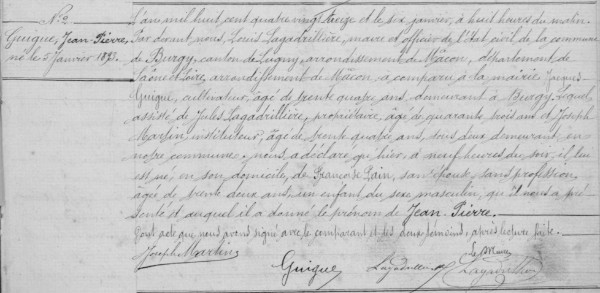 No 2
Guigue, Jean-Pierre,
né le 5 Janvier 1893.
L'an mil huit cent quatre vingt treize et le six janvier, à huit heures du matin.
Par devant nous, Louis Lagadrillière, maire et officier de l'Etat civil de la commune
de Burgy, canton de Lugny, arrondissement de Mâcon, département de
Saône et Loire, arrondissement de Mâcon, a comparu à la mairie, Jacques
Guigue, cultivateur, âgé de trente quatre ans, demeurant à Burgy, lequel
assisté de Jules Lagadrillière, propriétaire, âgé de quarante trois ans et Joseph
Martin, instituteur, âgé de trente quatre ans, tous deux demeurant en
notre commune, nous a déclaré qu'hier, à neuf heures du soir, il lui
est né, en son domicile, de Françoise Pain, son épouse, sans profession
âgée de trente deux ans, un enfant du sexe masculin, qu'il nous a pré-
senté et auquel il a donné le prénom de Jean-Pierre.
Dont acte que nous avons signé avec le comparant et les deux témoins, après lecture faite.
Joseph Martin
Guigue
Le Maire